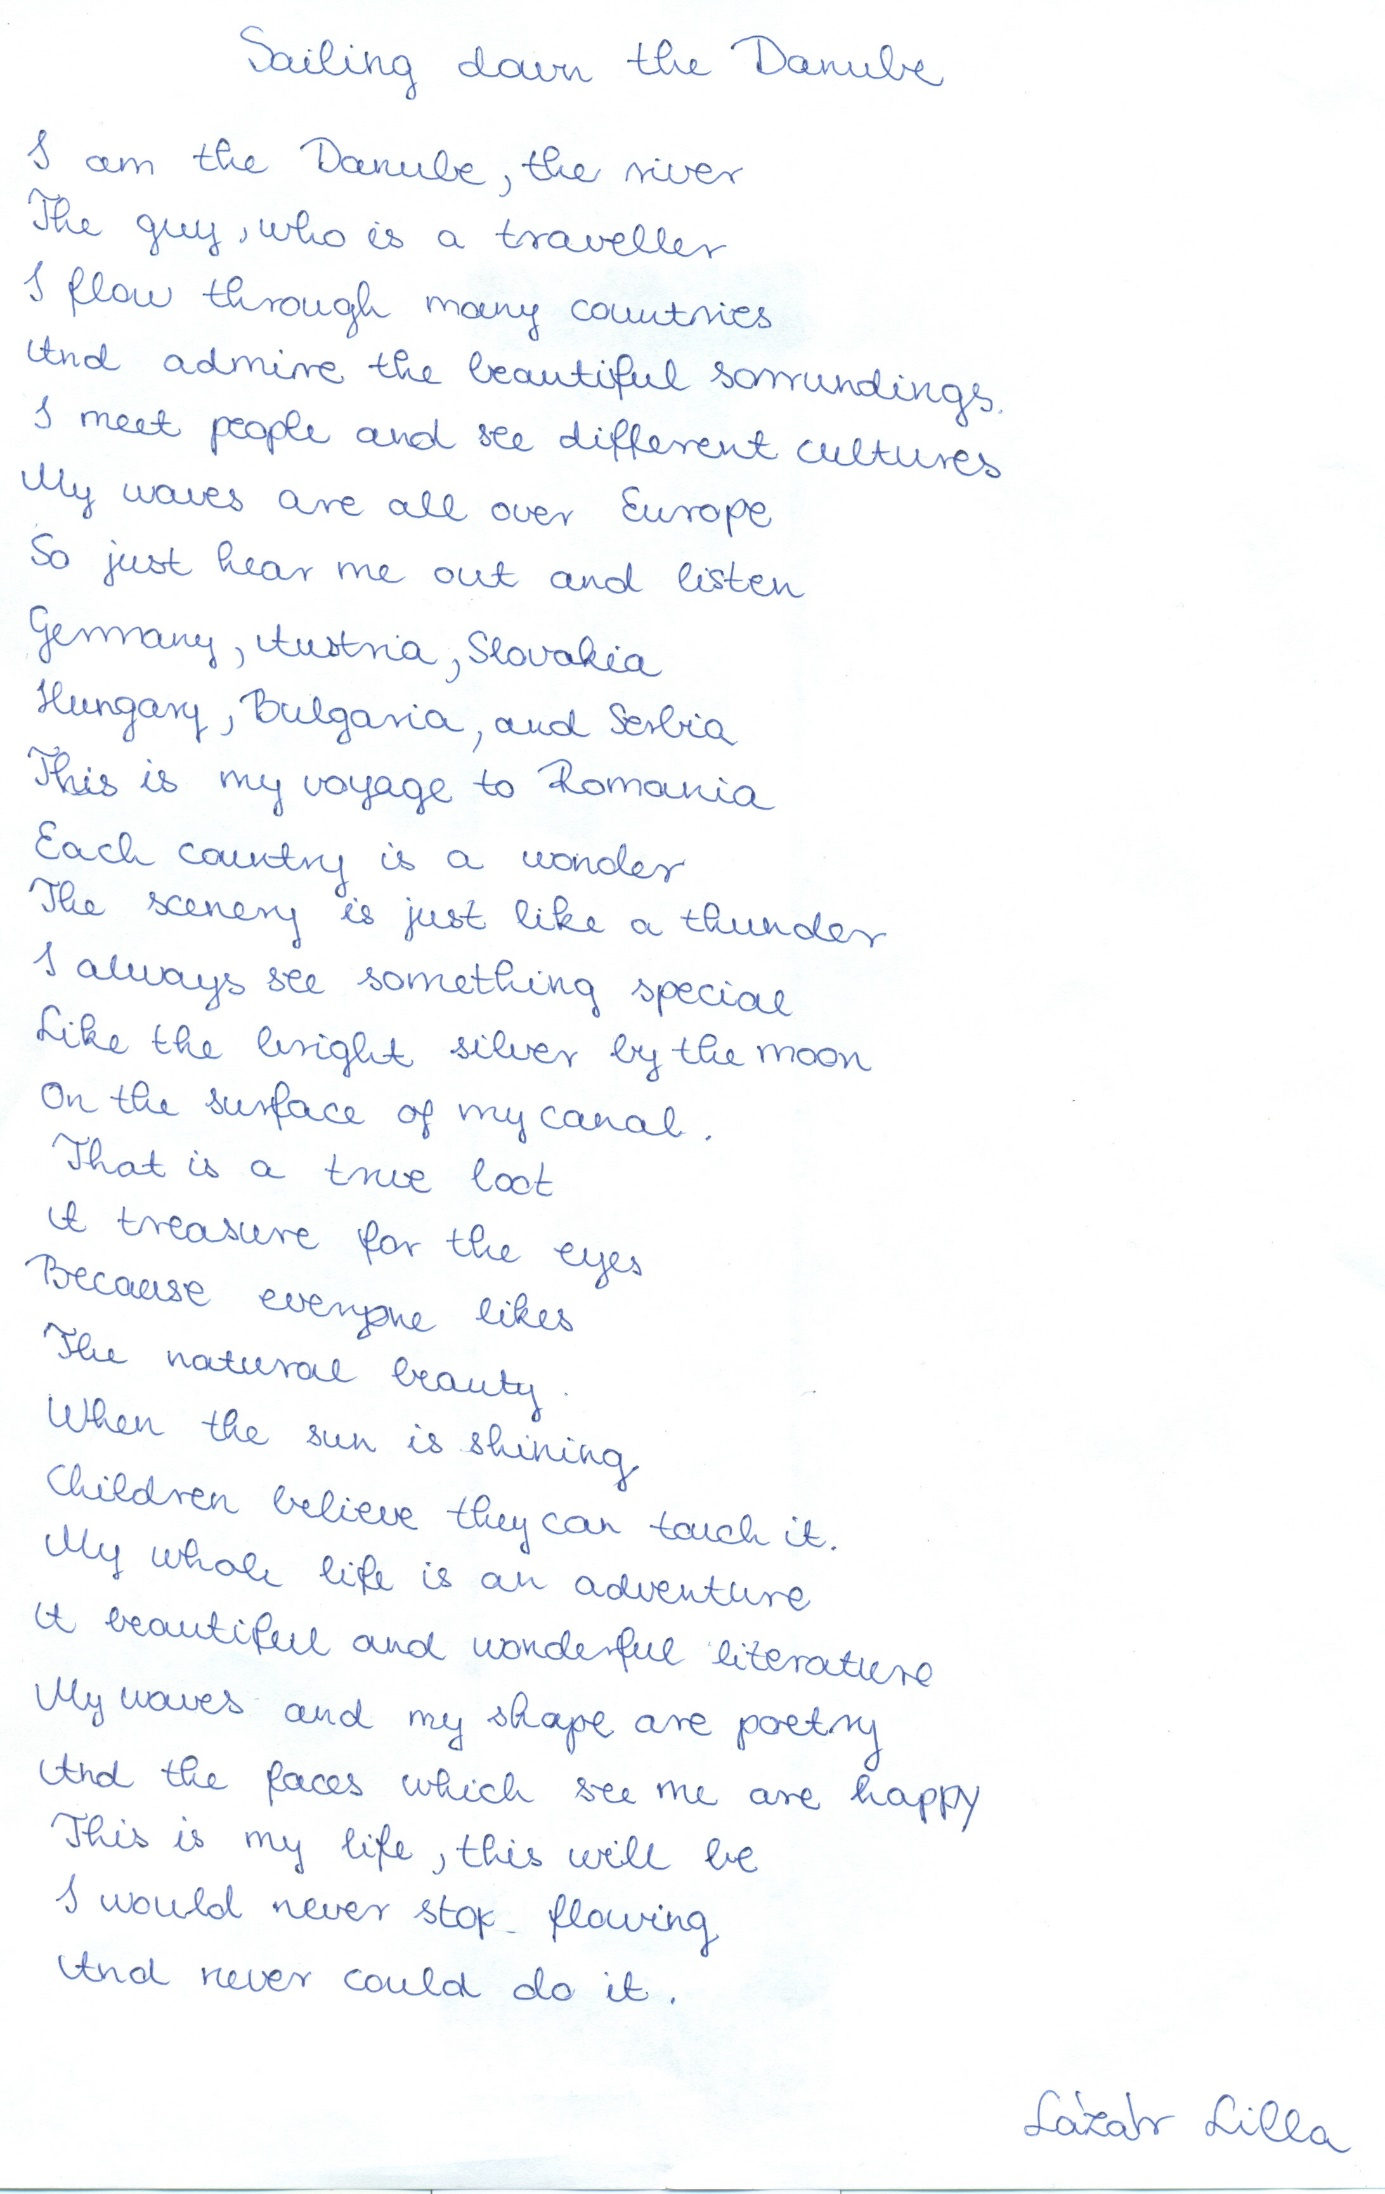 Sailing down the Danube
I am the Danube, the river
The guy, who is a traveller
I flow through many countries
And admire the beautiful sorrundings.
I meet people and see different cultures
My waves are all over Europe
So just hear me out and listen
Germany, Austria, Slovakia
Hungary, Bulgaria, and Serbia
This is my voyage to Romania
Each country is a wonder
The scenery is just like a thunder
I always see something special
Like the bright silver by the moon
On the surface of my canal.
That is a true loot
A treasure for the eyes
Because everyone likes
The natural beauty.
When the sun is shining
Children believe they can touch it.
My whole life is an adventure
A beautiful and wonderful literature
My waves and my shape are poetry
And the faces which see me are happy
This is my life, this will be
I would never stop flowing
And never could do it.
Lázár Lilla